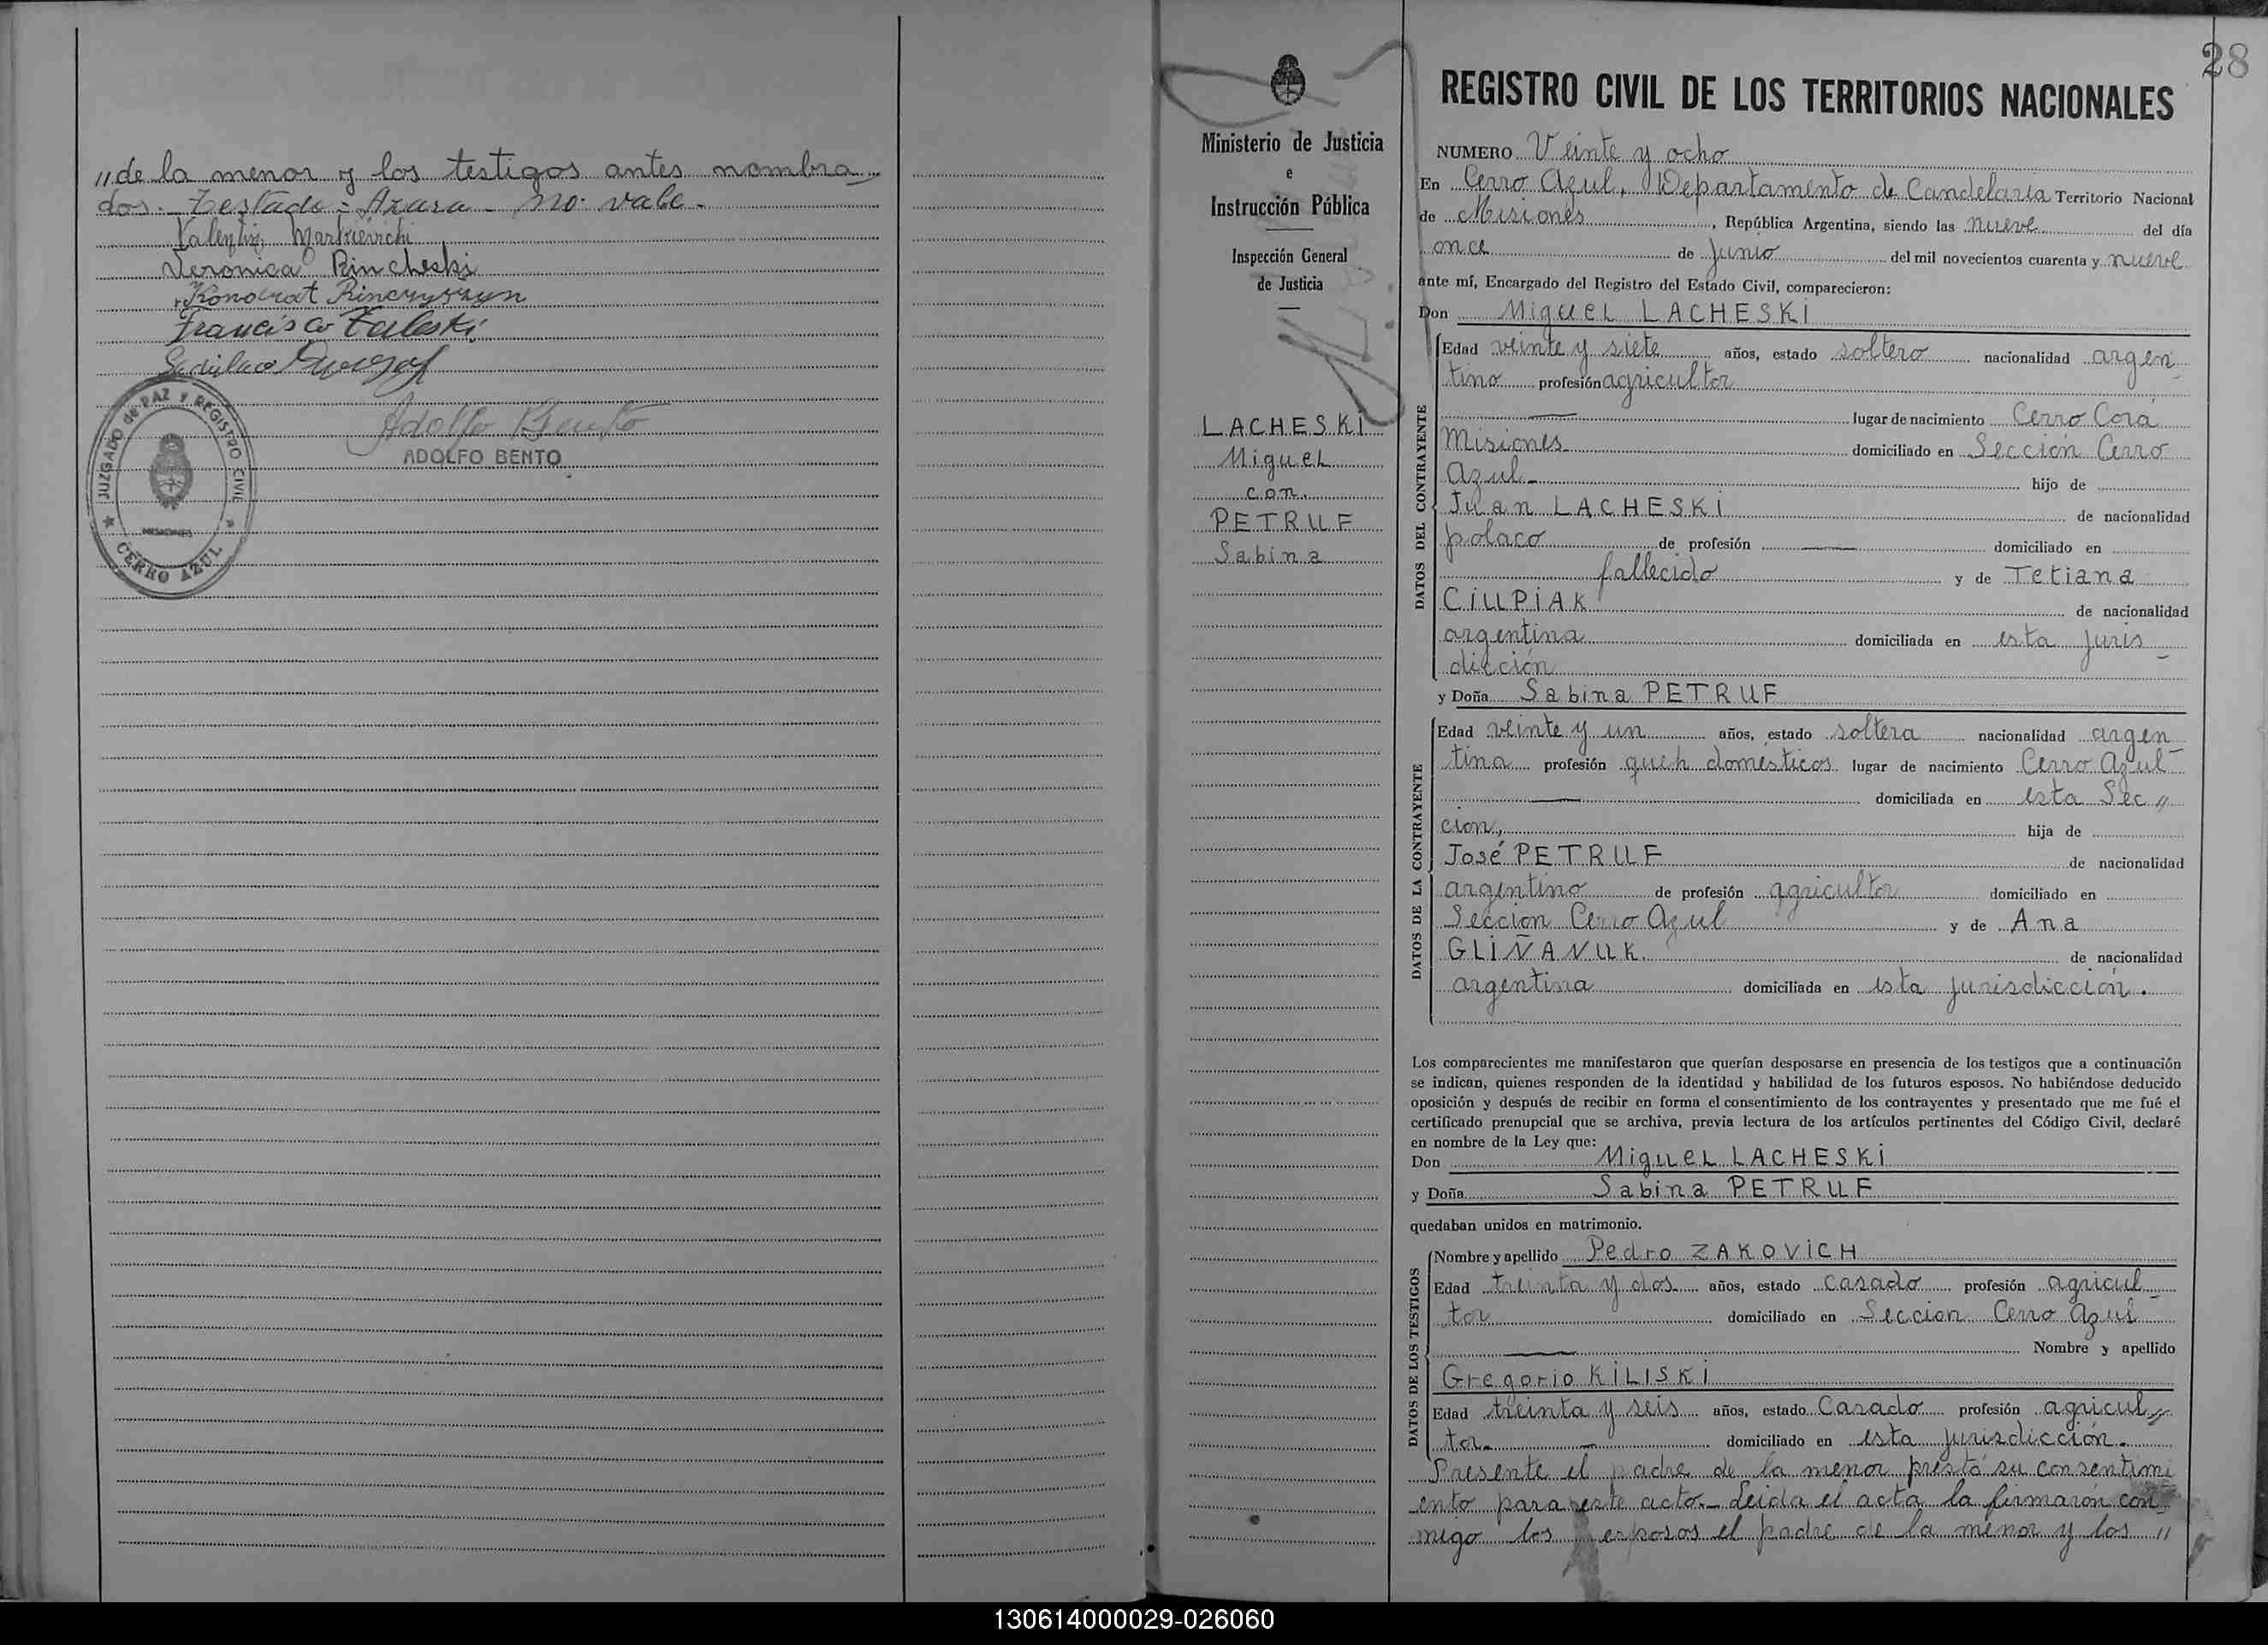 „de la menor y los testigos antes nombra
dos.- Testado = Azara - no vale.-
Valentin Markievichi
Veronica Rincheski
Kondrat Rinczyszyn
Francisco Zaleski
JUZGADO de PAZ Y REGISTRO CIVIL
MISIONES
CERRO AZUL
Adolfo Bento
ADOLFO BENTO
28
Ministerio de Justicia
e
Instrucción Pública
Inspección General
de Justicia
LACHESKI
Miguel
con
PETRUF
Sabina
REGISTRO CIVIL DE LOS TERRITORIOS NACIONALES
NUMERO Veinte y ocho
En Cerro Azul, Departamento de Candelaria Territorio Nacional
de Misiones, República Argentina, siendo las nueve del día
once de Junio del mil novecientos cuarenta y nueve
ante mí, Encargado del Registro del Estado Civil, comparecieron:
Don Miguel LACHESKI
DATOS DEL CONTRAYENTE
Edad veinte y siete años, estado soltero nacionalidad argen
tino profesión agricultor
lugar de nacimiento Cerro Corá
Misiones domiciliado en Sección Cerro
Azul hijo de
Juan LACHESKI de nacionalidad
polaco de profesión — domiciliado en
fallecido y de Tetiana
CIUPIAK de nacionalidad
argentina domiciliada en esta juris
dicción
y Doña Sabina PETRUF
DATOS DE LA CONTRAYENTE
Edad veinte y un años, estado soltera nacionalidad argen
tina profesión queh domésticos lugar de nacimiento Cerro Azul
domiciliada en esta Sec „
cion, hija de
José PETRUF de nacionalidad
argentino de profesión agricultor domiciliado en
Seccion Cerro Azul y de Ana
GLIÑANUK de nacionalidad
argentina domiciliada en esta jurisdicción.
Los comparecientes me manifestaron que querían desposarse en presencia de los testigos que a continuación
se indican, quienes responden de la identidad y habilidad de los futuros esposos. No habiéndose deducido
oposición y después de recibir en forma el consentimiento de los contrayentes y presentado que me fué el
certificado prenupcial que se archiva, previa lectura de los artículos pertinentes del Código Civil, declaré
en nombre de la Ley que:
Don Miguel LACHESKI
y Doña Sabina PETRUF
quedaban unidos en matrimonio.
DATOS DE LOS TESTIGOS
Nombre y apellido Pedro ZAKOVICH
Edad treinta y dos años, estado casado profesión agricul
tor domiciliado en Seccion Cerro Azul
Nombre y apellido
Gregorio KILISKI
Edad treinta y seis años, estado Casado profesión agricul „
tor. domiciliado en esta jurisdicción.
Presente el padre de la menor prestó su consentimi
ento para este acto.- Leida el acta la firmarón con
migo los esposos el padre de la menor y los „
130614000029-026060